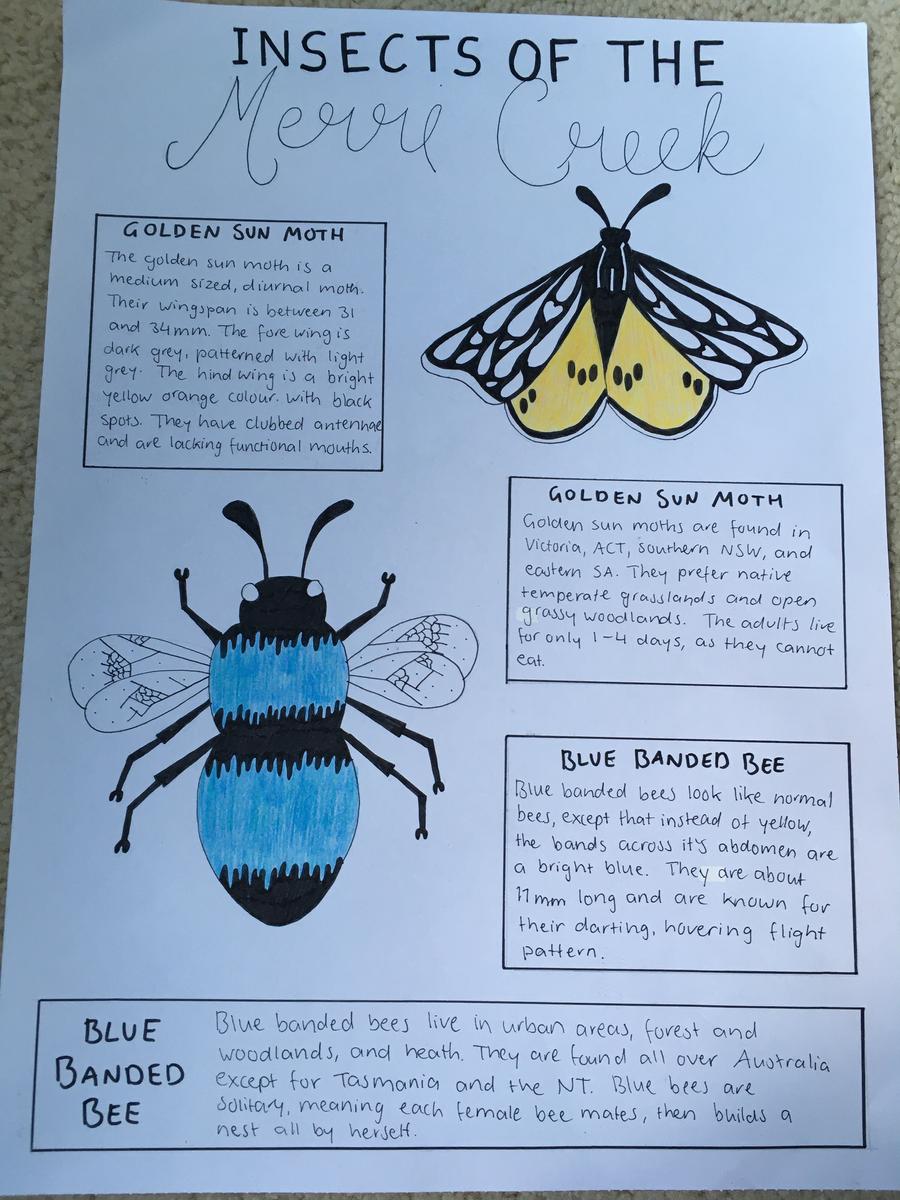 INSECTS OF THE
Merri Creek
GOLDEN SUN MOTH
The golden sun moth is a
medium sized, diurnal moth.
Their wingspan is between 31
and 34mm. The fore wing is
dark grey, patterned with light
grey. The hind wing is a bright
yellow orange colour. with black
spots. They have clubbed antennae
and are lacking functional mouths.
GOLDEN SUN MOTH
Golden sun moths are found in
Victoria, ACT, southern NSW, and
eastern SA. They prefer native
temperate grasslands and open
grassy woodlands. The adults live
for only 1-4 days, as they cannot
eat.
BLUE BANDED BEE
Blue banded bees look like normal
bees, except that instead of yellow,
the bands across it's abdomen are
a bright blue. They are about
11mm long and are known for
their darting, hovering flight
pattern.
BLUE
BANDED
BEE
Blue banded bees live in urban areas, forest and
woodlands, and heath. They are found all over Australia
except for Tasmania and the NT. Blue bees are
solitary, meaning each female bee mates, then builds a
nest all by herself.